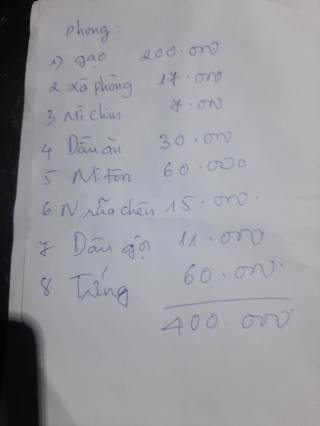 phong:
1) gạo 200.000
2 xà phòng 17.000
3 Mì chín 7.000
4 Dầu ăn 30.000
5 Mì tôm 60.000
6 N. rửa chén 15.000.
7 Dầu gội 11.000
8 Trứng 60.000.
400.000